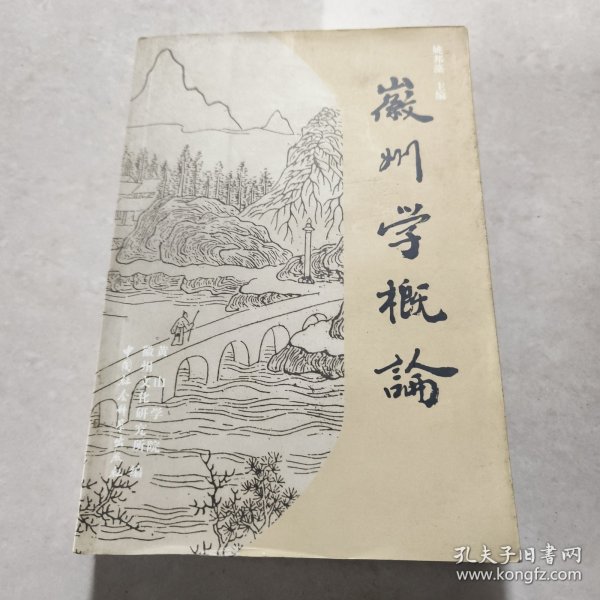 姚邦藻 主编
徽州学概論
黄山学院
徽州文化研究所 编
中国社会科学出版社
孔夫子旧书网
www.kongfz.com